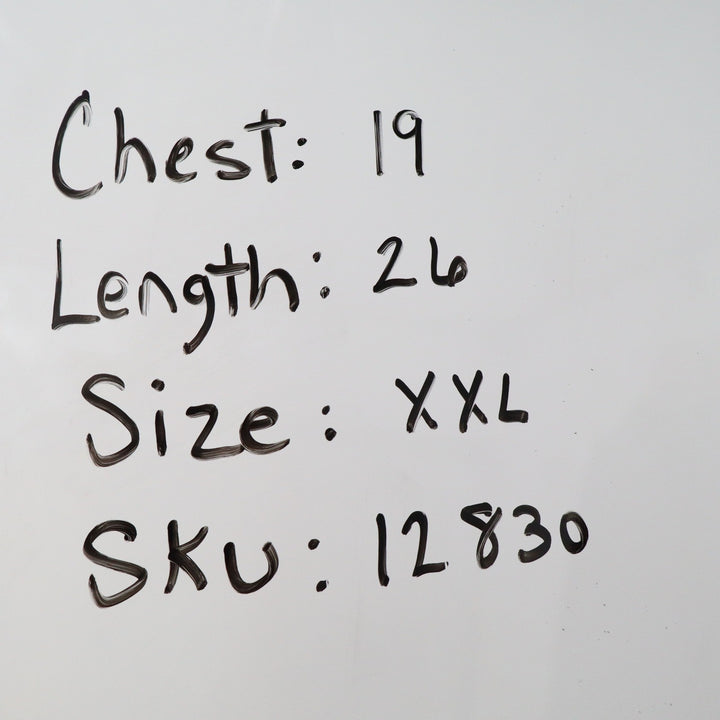 Chest: 19
Length: 26
Size: XXL
SKU: 12830